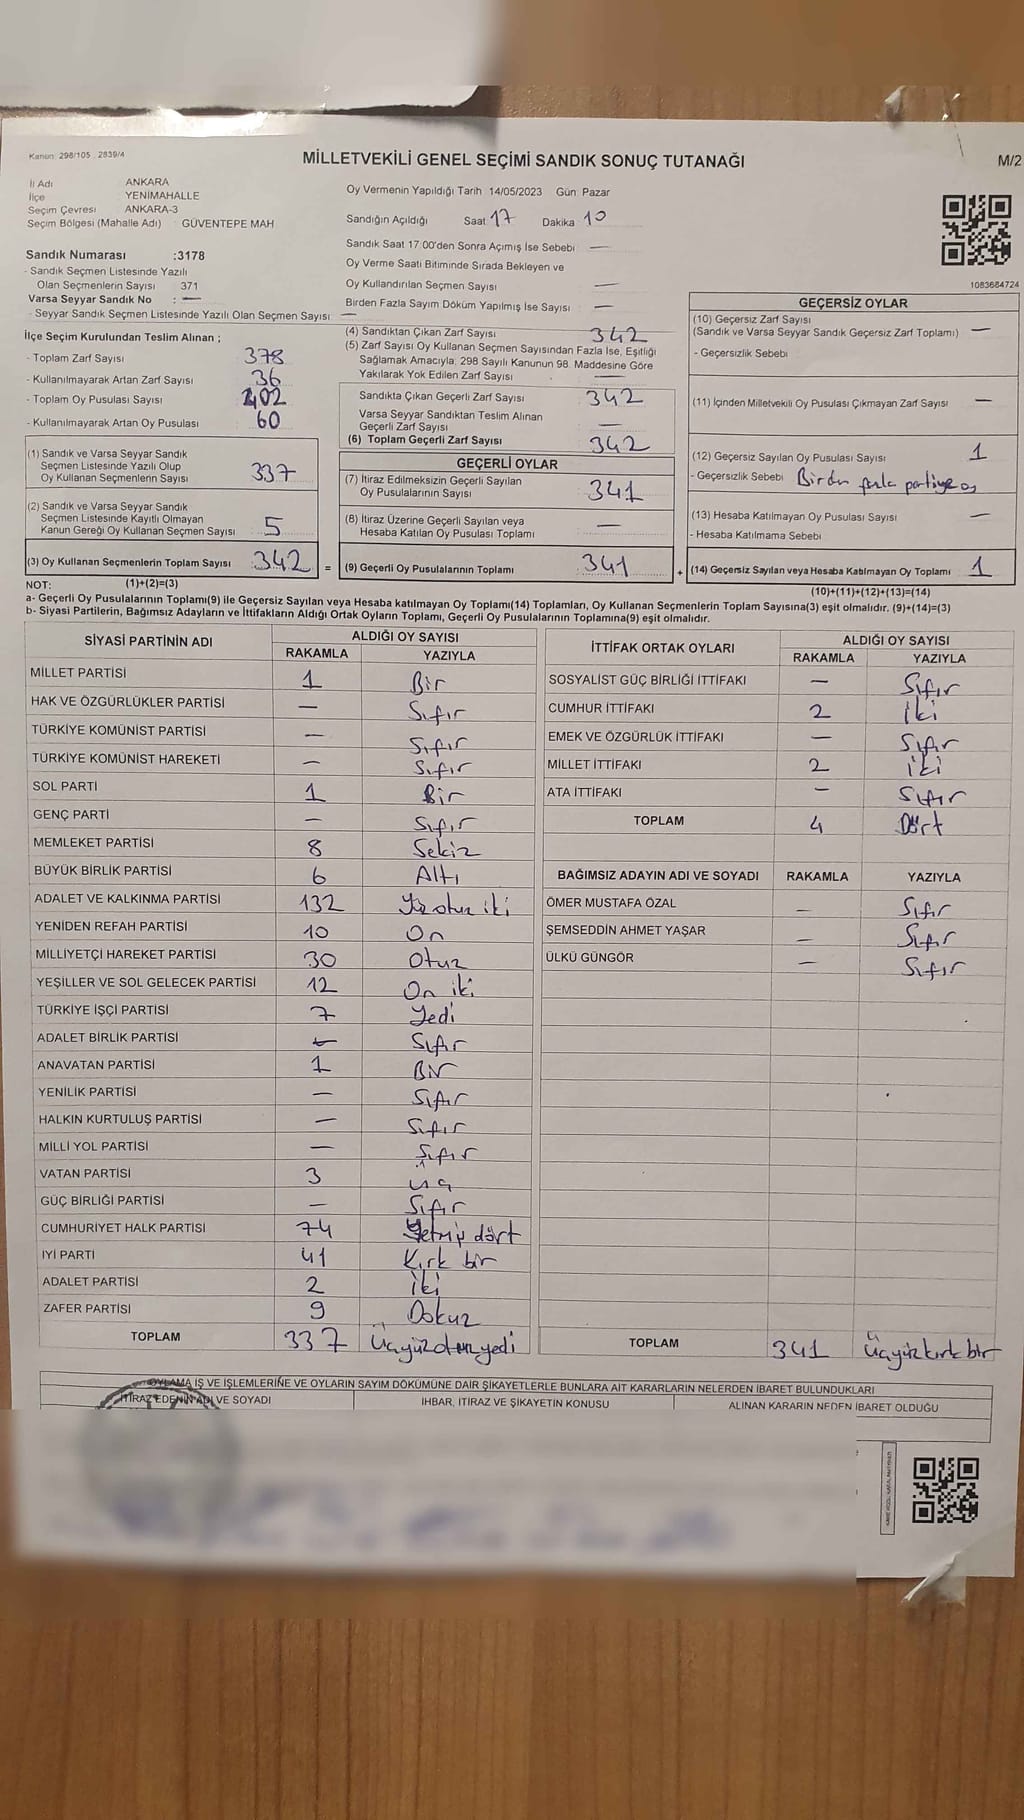 Kanun: 298/105 , 2839/4
MİLLETVEKİLİ GENEL SEÇİMİ SANDIK SONUÇ TUTANAĞI
M/2
İl Adı ANKARA
İlçe YENİMAHALLE
Seçim Çevresi ANKARA-3
Seçim Bölgesi (Mahalle Adı) GÜVENTEPE MAH
Oy Vermenin Yapıldığı Tarih 14/05/2023 Gün: Pazar
Sandığın Açıldığı Saat 17 Dakika 10
Sandık Saat 17:00'den Sonra Açımış İse Sebebi —
Oy Verme Saati Bitiminde Sırada Bekleyen ve
Oy Kullandırılan Seçmen Sayısı —
Birden Fazla Sayım Döküm Yapılmış İse Sayısı —
1083684724
Sandık Numarası :3178
- Sandık Seçmen Listesinde Yazılı
Olan Seçmenlerin Sayısı 371
Varsa Seyyar Sandık No : —
- Seyyar Sandık Seçmen Listesinde Yazılı Olan Seçmen Sayısı —
İlçe Seçim Kurulundan Teslim Alınan ;
- Toplam Zarf Sayısı 378
- Kullanılmayarak Artan Zarf Sayısı 36
- Toplam Oy Pusulası Sayısı 402
- Kullanılmayarak Artan Oy Pusulası 60
(1) Sandık ve Varsa Seyyar Sandık
Seçmen Listesinde Yazılı Olup
Oy Kullanan Seçmenlerin Sayısı 337
(2) Sandık ve Varsa Seyyar Sandık
Seçmen Listesinde Kayıtlı Olmayan
Kanun Gereği Oy Kullanan Seçmen Sayısı 5
(3) Oy Kullanan Seçmenlerin Toplam Sayısı 342 =
(1)+(2)=(3)
(4) Sandıktan Çıkan Zarf Sayısı 342
(5) Zarf Sayısı Oy Kullanan Seçmen Sayısından Fazla İse, Eşitliği
Sağlamak Amacıyla, 298 Sayılı Kanunun 98. Maddesine Göre
Yakılarak Yok Edilen Zarf Sayısı —
Sandıkta Çıkan Geçerli Zarf Sayısı 342
Varsa Seyyar Sandıktan Teslim Alınan
Geçerli Zarf Sayısı —
(6) Toplam Geçerli Zarf Sayısı 342
GEÇERLİ OYLAR
(7) İtiraz Edilmeksizin Geçerli Sayılan
Oy Pusulalarının Sayısı 341
(8) İtiraz Üzerine Geçerli Sayılan veya
Hesaba Katılan Oy Pusulası Toplamı —
(9) Geçerli Oy Pusulalarının Toplamı 341 +
GEÇERSİZ OYLAR
(10) Geçersiz Zarf Sayısı
(Sandık ve Varsa Seyyar Sandık Geçersiz Zarf Toplamı) —
- Geçersizlik Sebebi
(11) İçinden Milletvekili Oy Pusulası Çıkmayan Zarf Sayısı —
(12) Geçersiz Sayılan Oy Pusulası Sayısı 1
- Geçersizlik Sebebi Birden fazla partiye oy
(13) Hesaba Katılmayan Oy Pusulası Sayısı —
- Hesaba Katılmama Sebebi
(14) Geçersiz Sayılan veya Hesaba Katılmayan Oy Toplamı 1
(10)+(11)+(12)+(13)=(14)
NOT:
a- Geçerli Oy Pusulalarının Toplamı(9) ile Geçersiz Sayılan veya Hesaba katılmayan Oy Toplamı(14) Toplamları, Oy Kullanan Seçmenlerin Toplam Sayısına(3) eşit olmalıdır. (9)+(14)=(3)
b- Siyasi Partilerin, Bağımsız Adayların ve İttifakların Aldığı Ortak Oyların Toplamı, Geçerli Oy Pusulalarının Toplamına(9) eşit olmalıdır.
SİYASİ PARTİNİN ADI ALDIĞI OY SAYISI
RAKAMLA YAZIYLA
MİLLET PARTİSİ 1 Bir
HAK VE ÖZGÜRLÜKLER PARTİSİ — Sıfır
TÜRKİYE KOMÜNİST PARTİSİ — Sıfır
TÜRKİYE KOMÜNİST HAREKETİ — Sıfır
SOL PARTİ 1 Bir
GENÇ PARTİ — Sıfır
MEMLEKET PARTİSİ 8 Sekiz
BÜYÜK BİRLİK PARTİSİ 6 Altı
ADALET VE KALKINMA PARTİSİ 132 Yüzotuz iki
YENİDEN REFAH PARTİSİ 10 On
MİLLİYETÇİ HAREKET PARTİSİ 30 Otuz
YEŞİLLER VE SOL GELECEK PARTİSİ 12 On iki
TÜRKİYE İŞÇİ PARTİSİ 7 Yedi
ADALET BİRLİK PARTİSİ — Sıfır
ANAVATAN PARTİSİ 1 Bir
YENİLİK PARTİSİ — Sıfır
HALKIN KURTULUŞ PARTİSİ — Sıfır
MİLLİ YOL PARTİSİ — Sıfır
VATAN PARTİSİ 3 üç
GÜÇ BİRLİĞİ PARTİSİ — Sıfır
CUMHURİYET HALK PARTİSİ 74 Yetmiş dört
İYİ PARTİ 41 Kırk bir
ADALET PARTİSİ 2 İki
ZAFER PARTİSİ 9 Dokuz
TOPLAM 337 Üçyüzotuzyedi
İTTİFAK ORTAK OYLARI ALDIĞI OY SAYISI
RAKAMLA YAZIYLA
SOSYALİST GÜÇ BİRLİĞİ İTTİFAKI — Sıfır
CUMHUR İTTİFAKI 2 İki
EMEK VE ÖZGÜRLÜK İTTİFAKI — Sıfır
MİLLET İTTİFAKI 2 İki
ATA İTTİFAKI — Sıfır
TOPLAM 4 Dört
BAĞIMSIZ ADAYIN ADI VE SOYADI RAKAMLA YAZIYLA
ÖMER MUSTAFA ÖZAL — Sıfır
ŞEMSEDDİN AHMET YAŞAR — Sıfır
ÜLKÜ GÜNGÖR — Sıfır
TOPLAM 341 Üçyüzkırkbir
OYLAMA İŞ VE İŞLEMLERİNE VE OYLARIN SAYIM DÖKÜMÜNE DAİR ŞİKAYETLERLE BUNLARA AİT KARARLARIN NELERDEN İBARET BULUNDUKLARI
İTİRAZ EDENİN ADI VE SOYADI İHBAR, İTİRAZ VE ŞİKAYETİN KONUSU ALINAN KARARIN NEDEN İBARET OLDUĞU